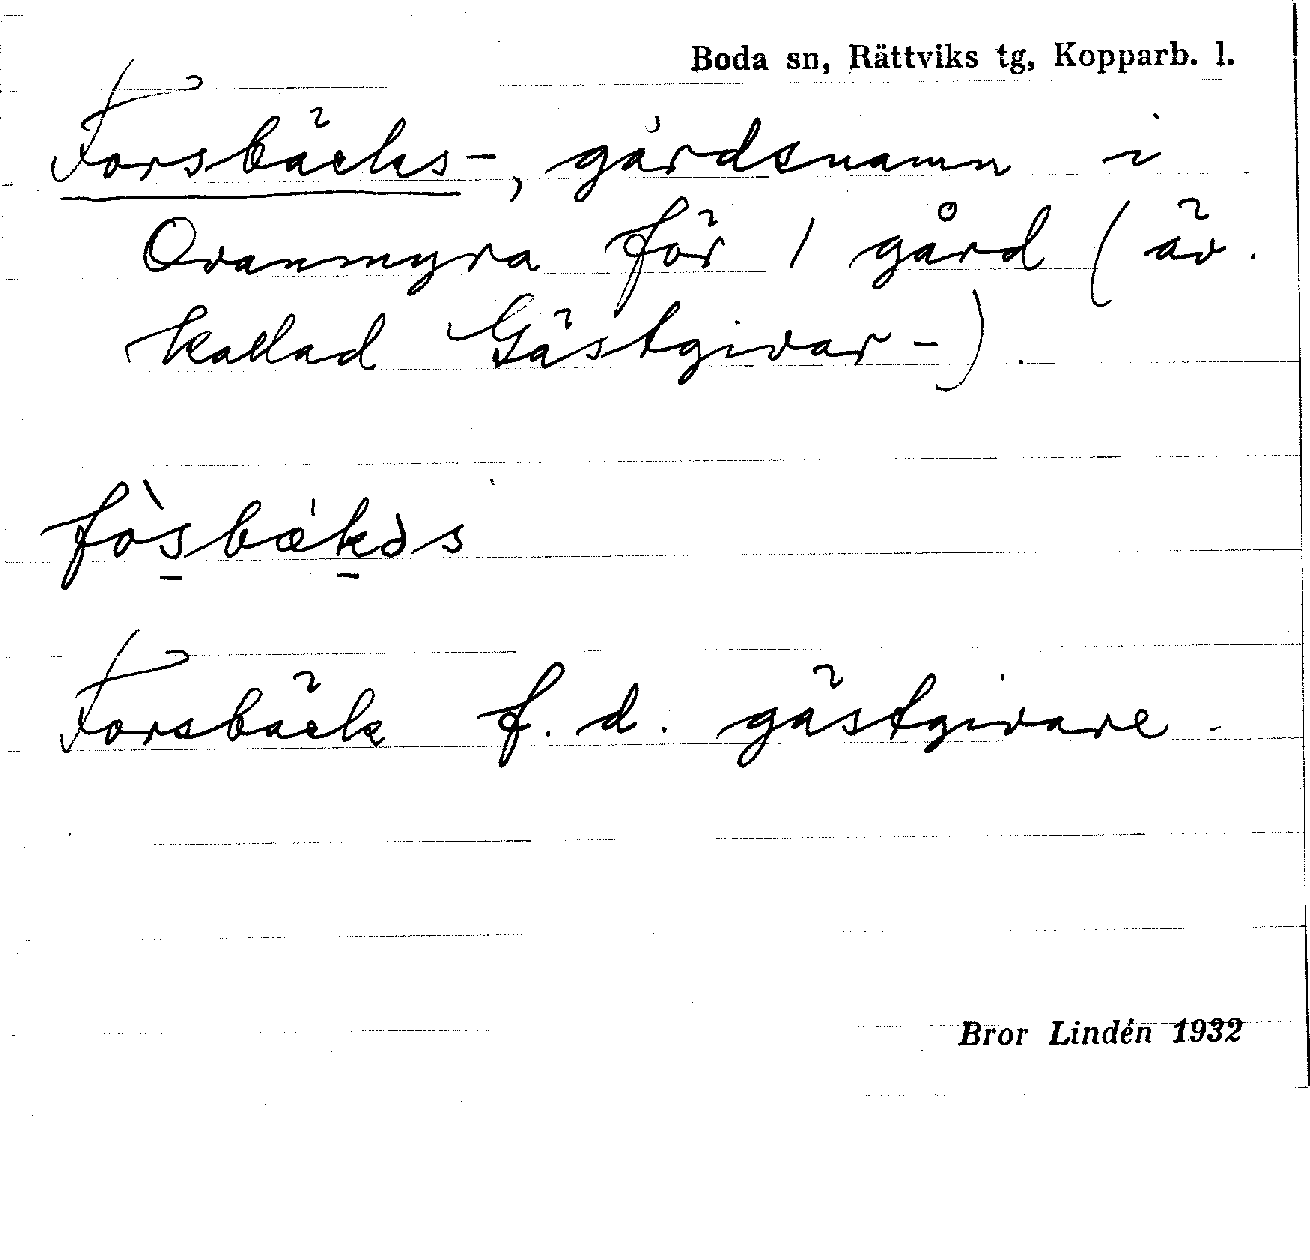 Boda sn, Rättviks tg, Kopparb. l.
Forsbäcks-, gårdsnamn i
Ovanmyra för 1 gård (äv.
kallad Gästgivar-).
fò̖̖s̠bǽk̠əs
Forsbäck f. d. gästgivare.
Bror Lindén 1932